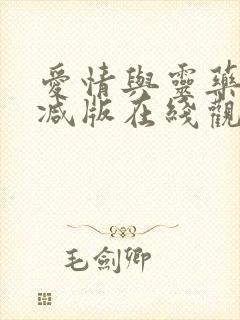 愛情與靈藥
減版在綫觀
毛劍卿